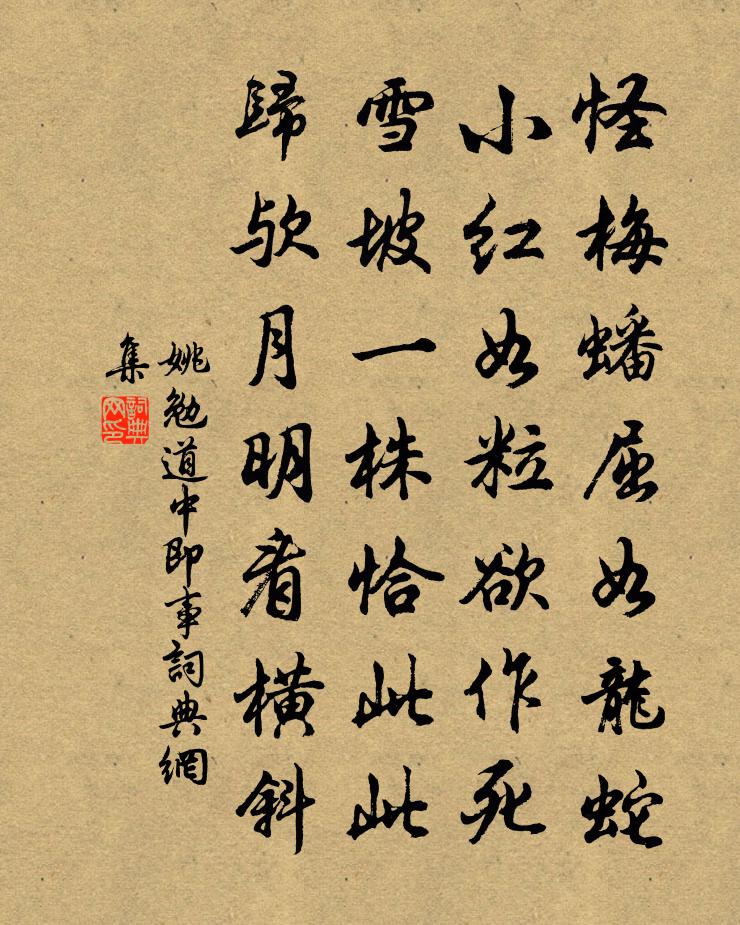 怪梅蟠屈如龍蛇
小红如粒欲作花
雪坡一株恰此此
歸欤月明看橫斜
姚勉道中即事詞典網
集
詞典
网印